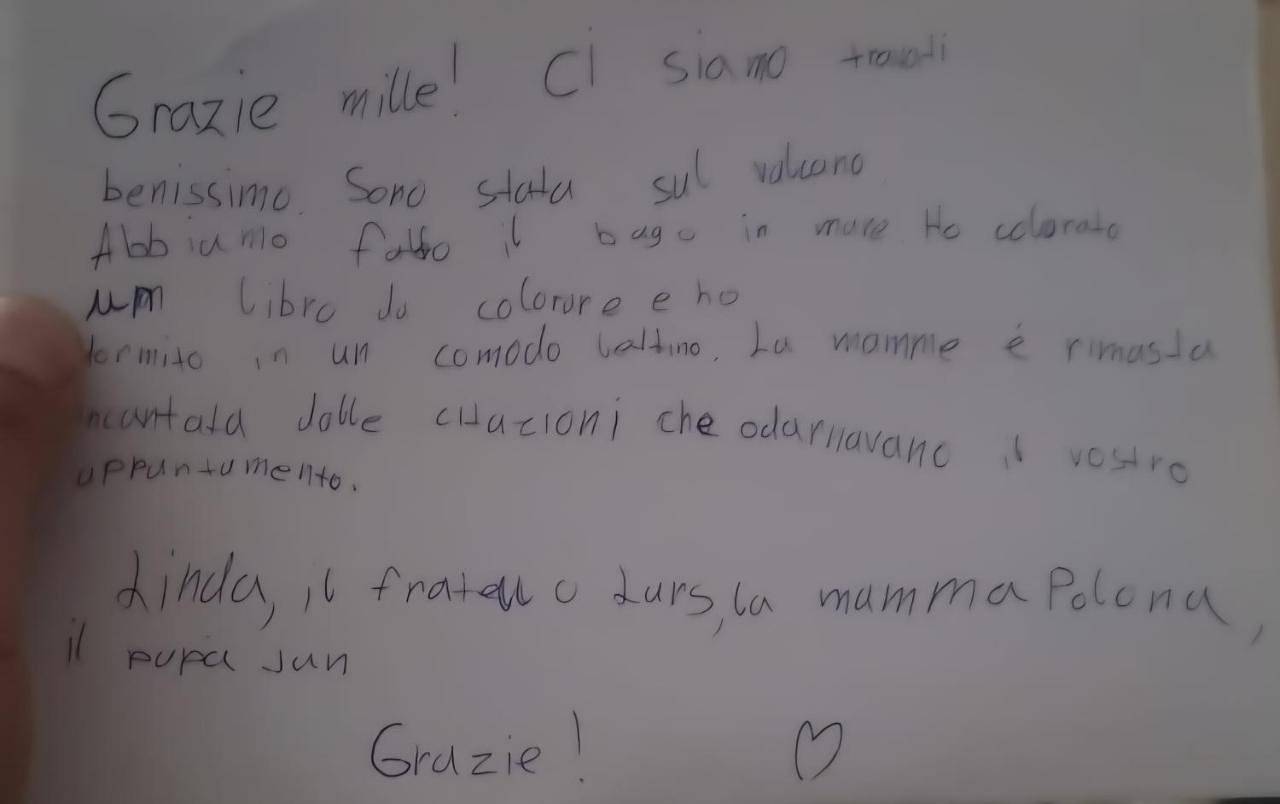 Grazie mille! Ci siamo trovati
benissimo. Sono stata sul vulcano
Abbiamo fatto il bago in mare Ho colorato
un libro da colorare e ho
dormito in un comodo lattino. La mamme é rimasta
incantata dalle citazioni che odarnavano il vostro
appuntamento.
Linda, il fratello Lars, la mamma Polona,
il papa Jan
Grazie!